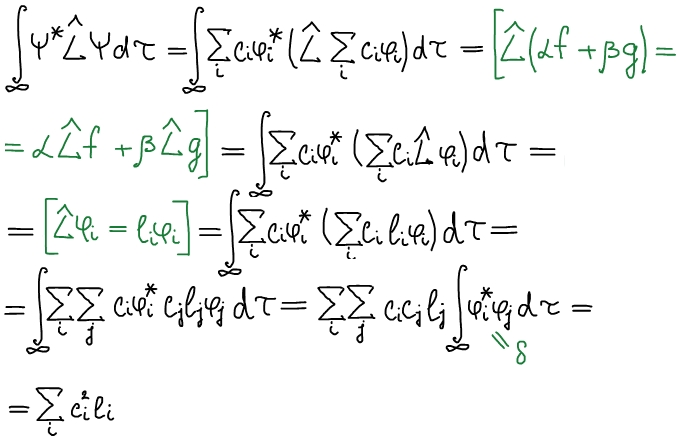 ∫_∞ Ψ* L̂ Ψ dτ = ∫_∞ Σ_i c_i φ_i* (L̂ Σ_i c_i φ_i) dτ = [L̂(αf + βg) =
= αL̂f + βL̂g] = ∫_∞ Σ_i c_i φ_i* (Σ_i c_i L̂ φ_i) dτ =
= [L̂φ_i = l_i φ_i] = ∫_∞ Σ_i c_i φ_i* (Σ_i c_i l_i φ_i) dτ =
= ∫_∞ Σ_i Σ_j c_i φ_i* c_j l_j φ_j dτ = Σ_i Σ_j c_i c_j l_j ∫_∞ φ_i* φ_j dτ =
= δ
= Σ_i c_i² l_i